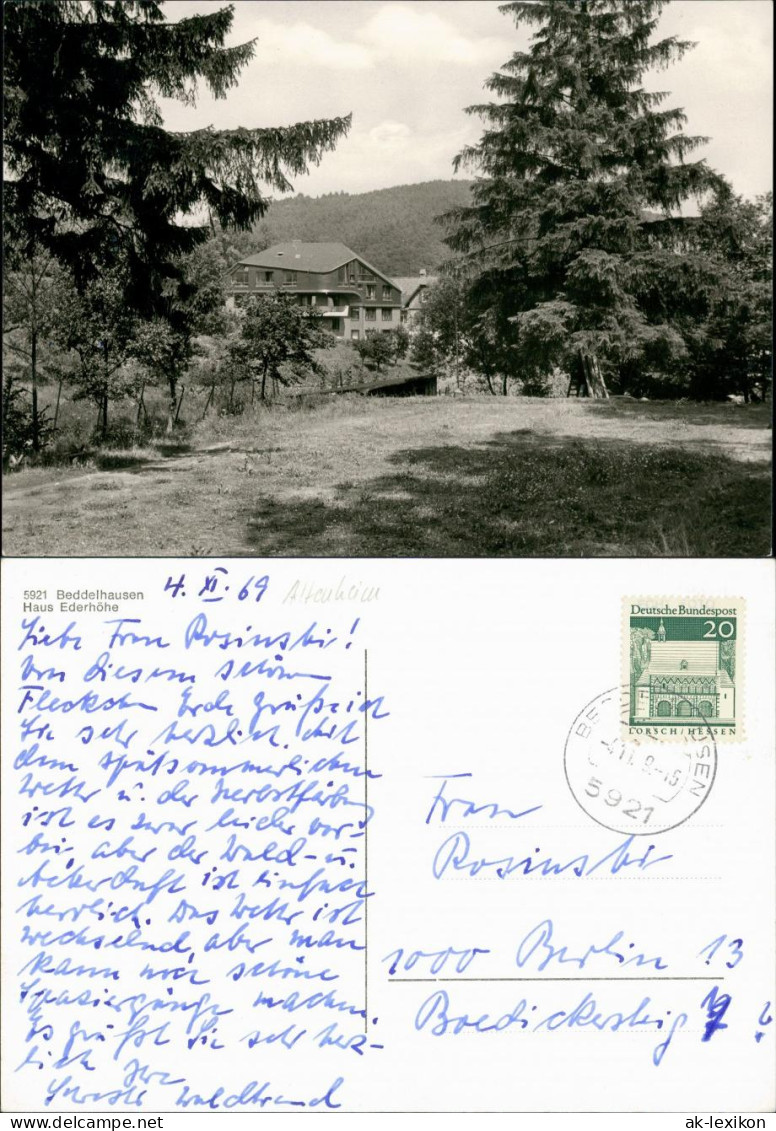 5921 Beddelhausen
Haus Ederhöhe
4. XI. 69
Altenheim
Liebe Frau Rosinski!
Von diesem schönen
Fleckchen Erde grüße ich
Sie sehr herzlich. Mit
dem spätsommerlichen
Wetter u. der Herbstfärbung
ist es zwar leider vor-
bei, aber der Wald- u.
Ackerduft ist einfach
herrlich. Das Wetter ist
wechselnd, aber man
kann noch schöne
Spaziergänge machen.
Es grüßt Sie sehr herz-
lich Ihre
Schwester Waldtraud
Deutsche Bundespost
20
LORSCH/HESSEN
BEDDELHAUSEN
5921
Frau
Rosinski
1000 Berlin 13
ak-lexikon